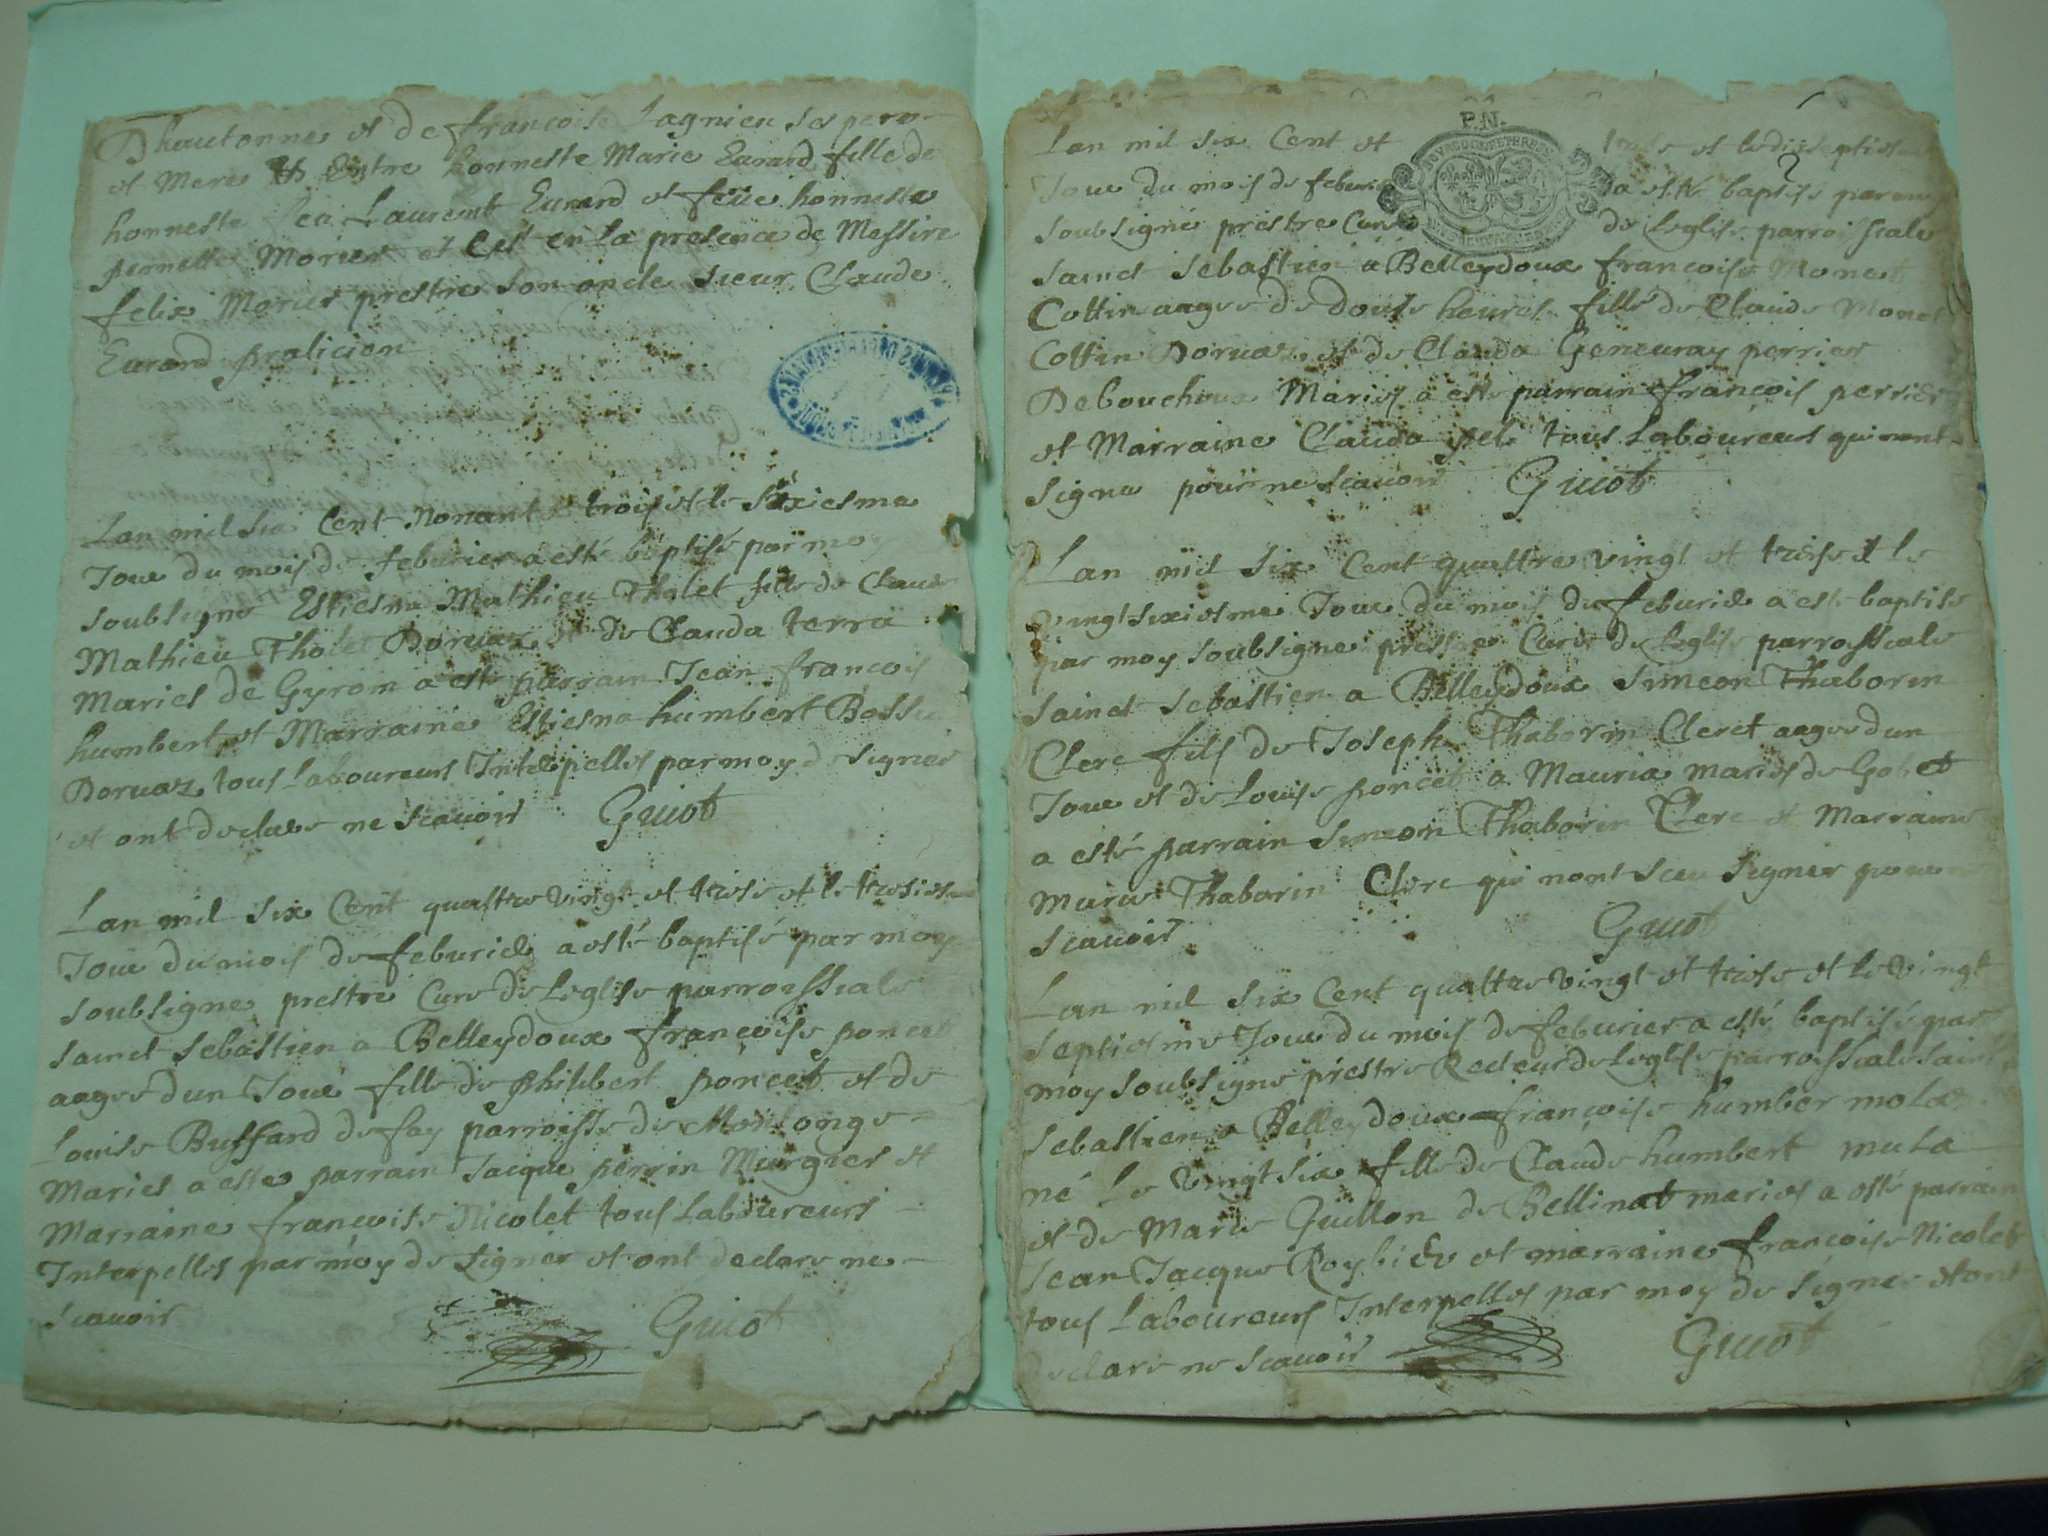 Dhautonne et de francoise Lagnieu ses pere
et Mere Et Entre honneste Marie Eurard fille de
honneste feu Laurent Eurard et feüe honneste
pernette Morier et Cest en la presence de Messire
felix Morier prestre son oncle sieur Claude
Eurard pralicion
Lan mil six Cent Nonante trois et le Sixiesme
Jour du mois de feburier a esté baptisé par moy
soubsigne Estiesna Mathieu Tholet fille de Claude
Mathieu Tholet Doruaz et de Clauda terra
Maries de Gyrom a este parrain Jean francois
humbert et Marraine Estiesna humbert Bossu
Doruaz tous Laboureurs Interpelles par moy de signer
et ont declare ne scauoir Guiot
Lan mil six Cent quattre vingt et treise et le
Jour du mois de feburier a esté baptisé par moy
soubsigne prestre Cure de Leglise parroissiale
sainct sebastien a Belleydoux francoise poncet
aagee dun Jour fille de philibert poncet et de
Louise Buffard de fay parroisse de
Maries a este parrain Jacque perrin Murgier et
Marraine francoise Nicolet tous Laboureurs
Interpelles par moy de signer et ont declare ne
scauoir Guiot
P.N.
Lan mil six Cent et treise et le dixseptiesme
Jour du mois de feburier a esté baptisé par moy
soubsigné prestre Cure de Leglise parroissiale
sainct sebastien a Belleydoux francoise Monet
Cottin aagee de douse heures fille de Claude Monet
Cottin Doruaz et de Clauda Geneuray perrier
Debouchoux Maries a este parrain francois perrier
et Marraine Clauda tous Laboureurs qui nont
signe pour ne scauoir Guiot
Lan mil six Cent quattre vingt et treise et le
vingt sixiesme Jour du mois de feburier a este baptise
par moy soubsigne prestre Cure de Leglise parroissiale
sainct sebastien a Belleydoux Simeon Thaborin
Clerc fils de Joseph Thaborin Cleret aage dun
Jour et de Louise poncet a Mauria maries de Gobet
a esté parrain Simeon Thaborin Clerc et Marraine
Marie Thaborin Clerc qui nont sceu signer pour ne
scauoir Guiot
Lan mil six Cent quattre vingt et treise et le vingt
septiesme Jour du mois de feburier a esté baptisé par
moy soubsigne prestre Recteur de Leglise parroissiale sainct
sebastien a Belleydoux francoise humber
né Le vingt six fille de Claude humbert
et de Marie Guillon de Bellinat maries a esté parrain
Jean Jacque et marraine francoise Nicolet
tous Laboureurs Interpelles par moy de signer et ont
declare ne scauoir Guiot